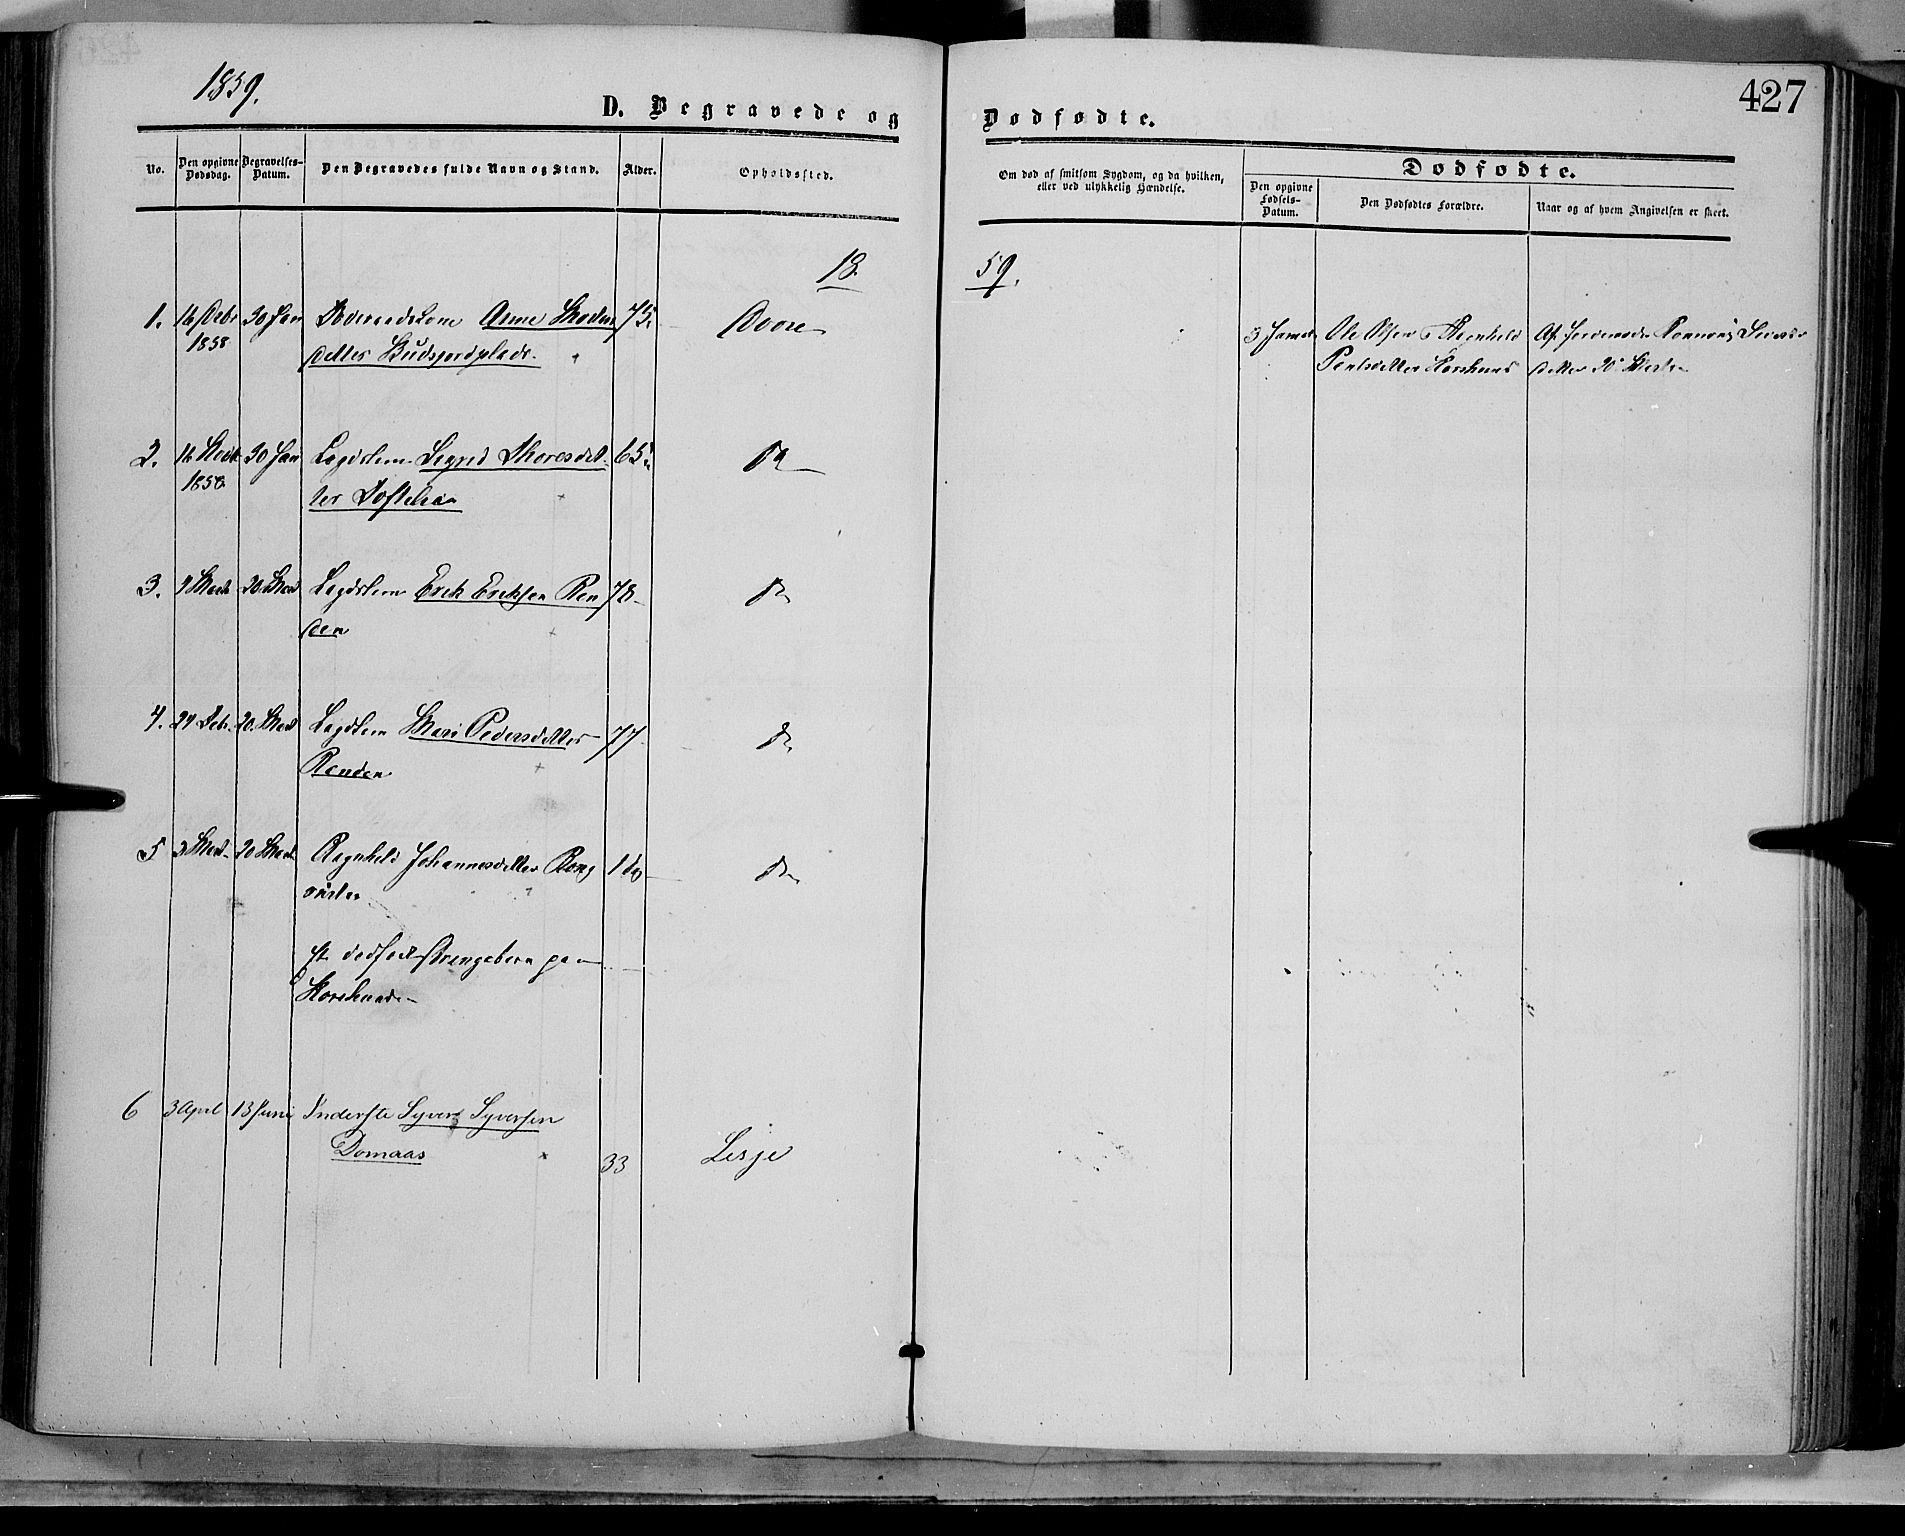 1859.
D. Begravede og
Dødfødte.
427
No.
Den opgivne Dødsdag.
Begravelses-Datum.
Den Begravedes fulde Navn og Stand.
Alder.
Opholdssted.
Om død af smitsom Sygdom, og da hvilken,
eller ved ulykkelig Hændelse.
Dødfødte.
Den opgivne Fødsels-Datum.
Den Dødfødtes Forældre.
Naar og af hvem Angivelsen er skeet.
18
59.
1. 16 Debr 30 Jan Anne 75
1858 datter Budsjordplads.
Dovre
3 Januar Ole Olsen Ragnhild
Af Jordemoder
datter
2. 30 Jan Lægdslem Sigrid Thoresdat- 65
1858 ter Tofteha
Do
3. 9 Marts 20 Marts Lægdslem Erik Eriksen Ren 78
den
Do
4. 24 Feb. 20. Marts Lægdslem Mari Pedersdatter 77
Renden
Do
5 3 Marts 20 Marts Ragnhild Johannesdatter 1 dag
Do
et dødfødt Drengebarn paa
6 3 April 13 Juni Inderste Syver Syversen
Domaas 33 Lesje